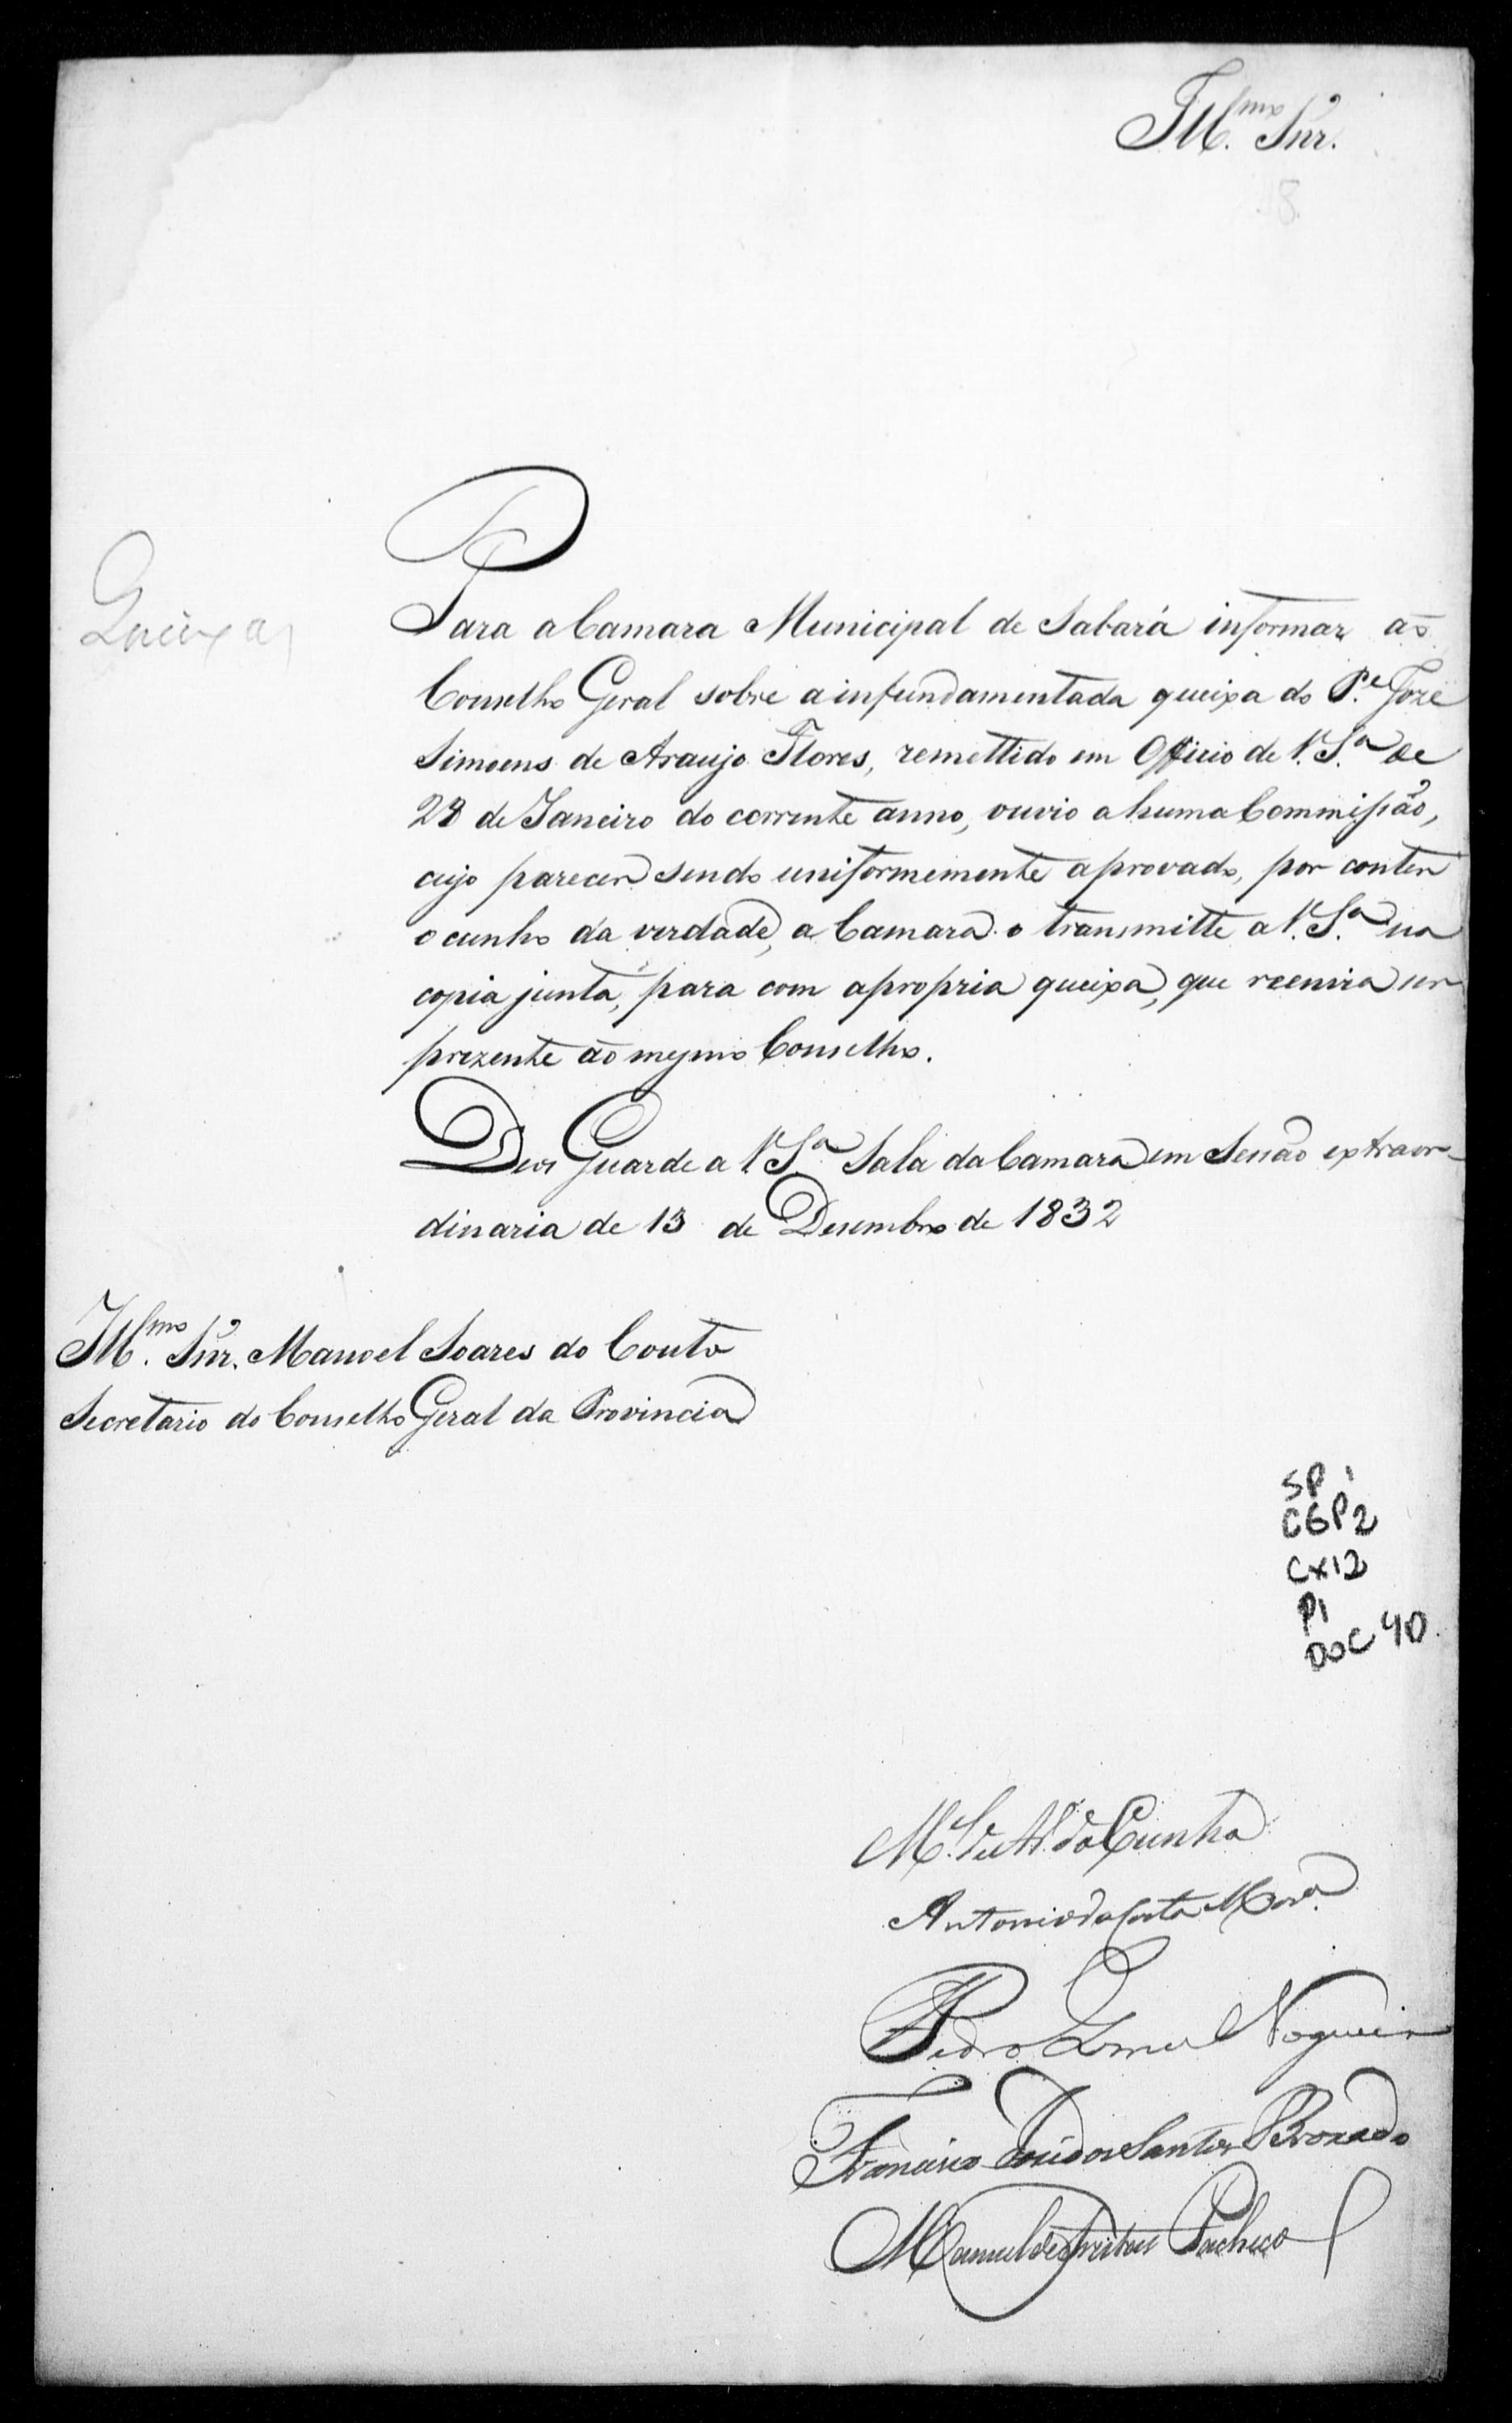 Ill.mo Snr.
8
Queixas
Para a Camara Municipal de Sabará informar ao
Conselho Geral sobre a infundamentada queixa do P.e Jozé
Simoens de Araujo Flores, remettido em Officio de V. S.a de
28 de Janeiro do corrente anno, ouvio a huma Commissão,
cujo parecer sendo uniformemente aprovado, por conter
o cunho da verdade, a Camara o transmitte a V. S.a na
copia junta, para com a propria queixa, que reenvia ser
prezente ao mesmo Conselho.
Deos Guarde a V S.a Sala da Camara em Sessão extraor-
dinaria de 13 de Desembro de 1832
Ill.mo Snr. Manoel Soares do Couto
Secretario do Conselho Geral da Provincia
SP 1
CGP 2
CX 12
P1
DOC 40.
M.el da Cunha
Antonio da Costa
Pedro Gomes Nogueira
Francisco José dos Santos Brochado
Manuel de Freitas Pacheco